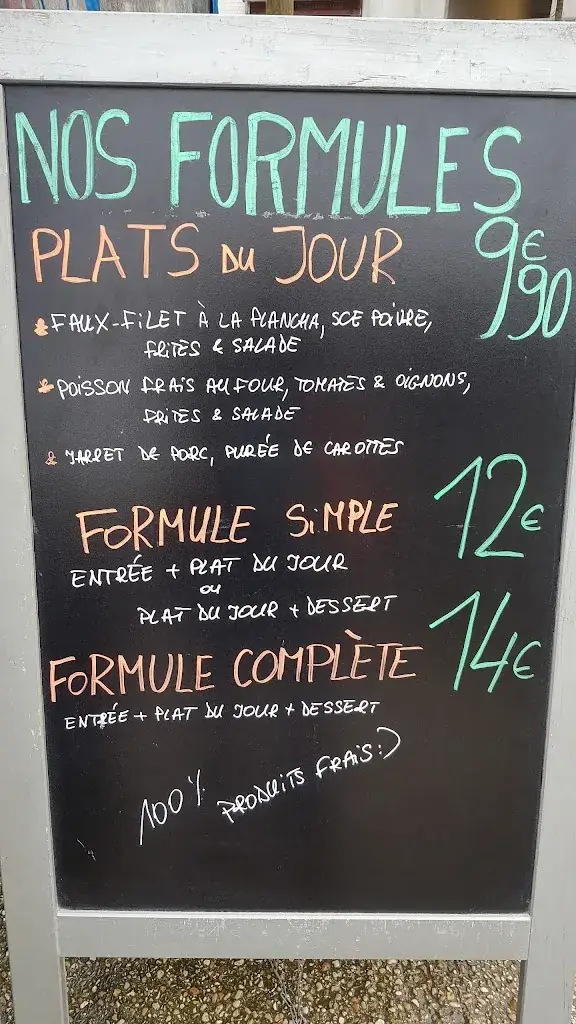 NOS FORMULES
PLATS DU JOUR 9€90
FAUX-FILET À LA PLANCHA, SCE POIVRE,
FRITES & SALADE
POISSON FRAIS AU FOUR, TOMATES & OIGNONS,
FRITES & SALADE
JARRET DE PORC, PURÉE DE CAROTTES
FORMULE SIMPLE 12€
ENTRÉE + PLAT DU JOUR
OU
PLAT DU JOUR + DESSERT
FORMULE COMPLÈTE 14€
ENTRÉE + PLAT DU JOUR + DESSERT
100% PRODUITS FRAIS :)